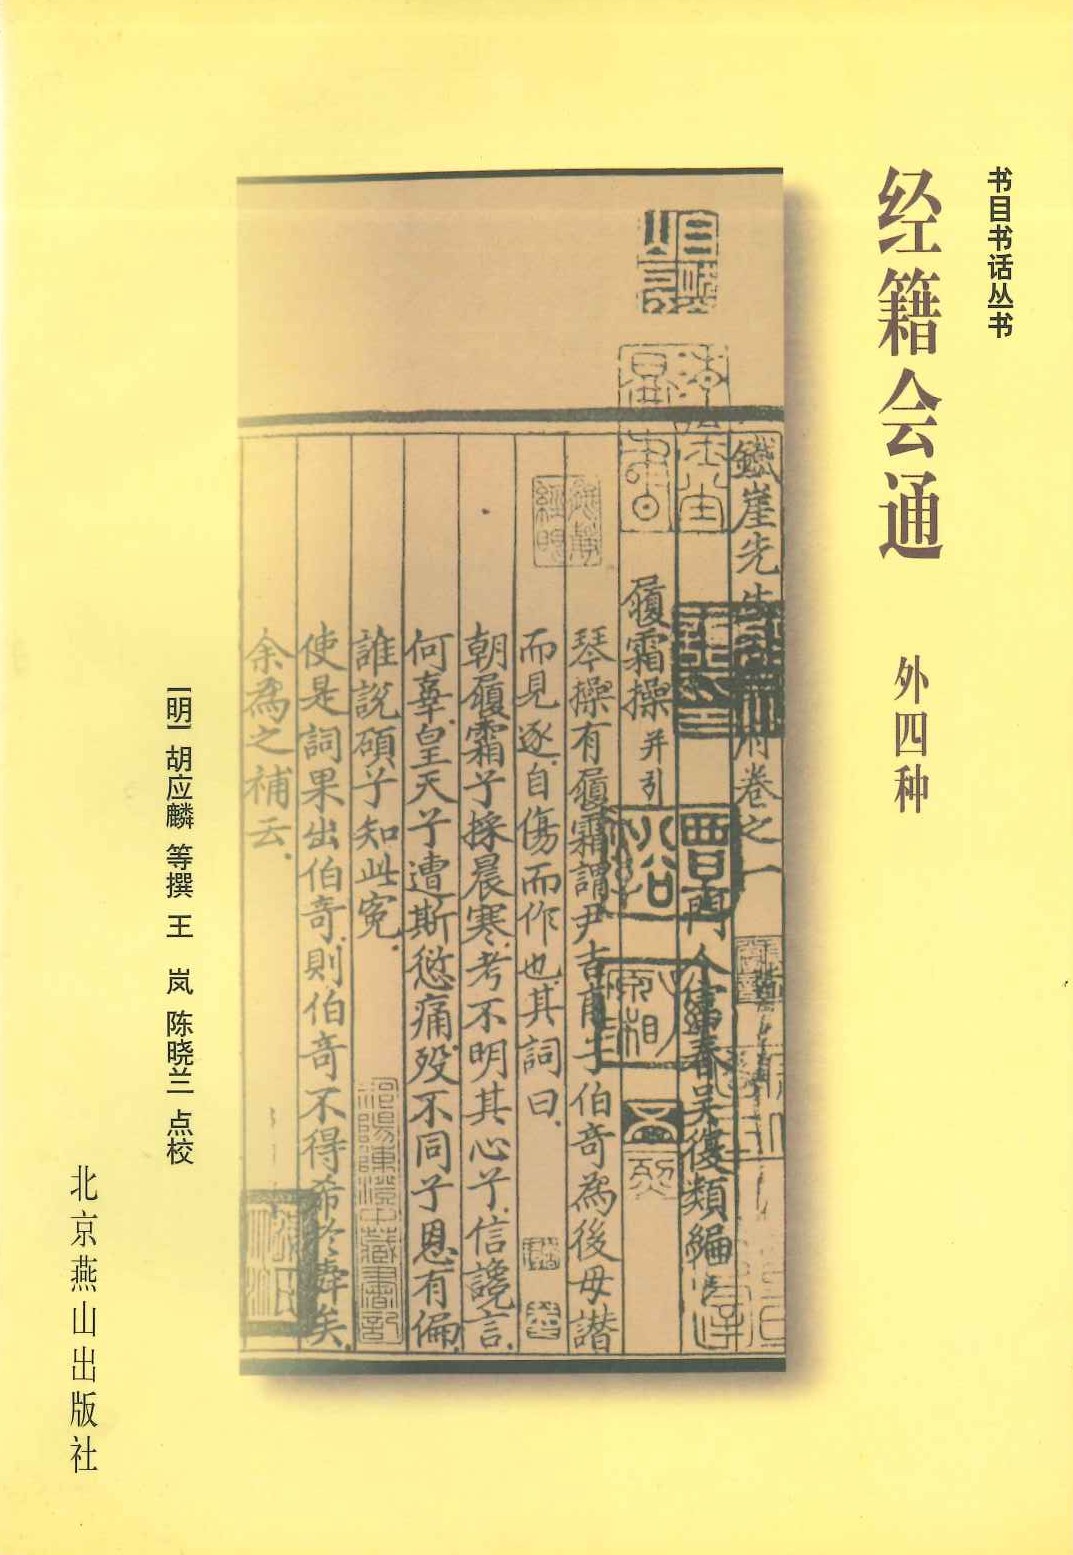 书目书话丛书
经籍会通 外四种
鐵崖先生府卷之一
門人富春吳復類編
履霜操并引
琴操有履霜謂尹吉甫子伯奇為後母譖
而見逐.自傷而作也.其詞曰.
朝履霜兮採晨寒.考不明其心兮.信讒言.
何辜皇天兮遭斯愆痛歿不同兮恩有偏.
誰說碩兮知此寃.
使是詞果出伯奇.則伯奇不得希於舜矣.
余為之補云.
祁陽陳澄中藏書記
[明]胡应麟 等撰 王 岚 陈晓兰 点校
北京燕山出版社